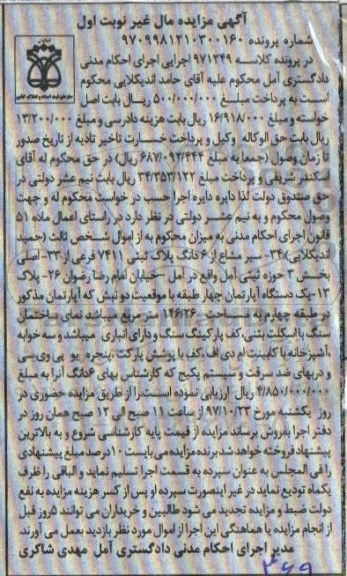 آگهی مزایده مال غیر نوبت اول
شماره پرونده ۹۷۰۹۹۸۱۲۱۰۳۰۰۱۶۰
در پرونده کلاسه ۹۷۱۲۴۹ اجرایی اجرای احکام مدنی
دادگستری آمل محکوم علیه آقای حامد اندیکلایی محکوم
است به پرداخت مبلغ ۵۰۰/۰۰۰/۰۰۰ ریال بابت اصل
خواسته و مبلغ ۱۶/۹۱۸/۰۰۰ ریال بابت هزینه دادرسی و مبلغ ۱۳/۲۰۰/۰۰۰
ریال بابت حق الوکاله وکیل و پرداخت خسارت تاخیر تادیه از تاریخ صدور
تا زمان وصول (جمعا به مبلغ ۶۸۷/۰۹۲/۴۴۴ ریال) در حق محکوم له آقای
اسکندر شریفی و پرداخت مبلغ ۳۴/۳۵۳/۱۲۲ ریال بابت نیم عشر دولتی در
حق صندوق دولت لذا دایره اجرا حسب درخواست محکوم له و جهت
وصول محکوم به و نیم عشر دولتی در نظر دارد در راستای اعمال ماده ۵۱
قانون اجرای احکام مدنی به میزان محکوم به از اموال شخص ثالث (حمید
اندیکلایی) ۳۴- سیر مشاع از ۶ دانگ پلاک ثبتی ۷۴۱۱ فرعی از ۳۳- اصلی
بخش ۳ حوزه ثبتی آمل واقع در آمل -خیابان امام رضا رضوان ۲۶- پلاک
۱۲-یک دستگاه آپارتمان چهار طبقه با موقعیت دو نبش که آپارتمان مذکور
در طبقه چهارم به مساحت ۱۴۶/۲۶ متر مربع میباشد نمای ساختمان
سنگ با اسکلت بتنی، کف پارکینگ سنگ و دارای انباری میباشد و سه خوابه
،آشپزخانه با کابینت ام دی اف، کف با پوشش پارکت ،پنجره یو پی وی سی
و دربهای ضد سرقت و سیستم پکیج که کارشناس بهای ۶دانگ آنرا به مبلغ
۴/۸۵۰/۰۰۰/۰۰۰ ریال ارزیابی نموده است را از طریق مزایده حضوری در
روز یکشنبه مورخ ۹۷/۱۰/۲۳ از ساعت ۱۱ صبح الی ۱۲ صبح همان روز در
دفتر اجرا بفروش برساند مزایده از قیمت پایه کارشناسی شروع و به بالاترین
پیشنهاد فروخته خواهد شد برنده مزایده می بایست ۱۰ درصد مبلغ پیشنهادی
را فی المجلس به عنوان سپرده به قسمت اجرا تسلیم نماید و الباقی را ظرف
یکماه تودیع نماید در غیر اینصورت سپرده او پس از کسر هزینه مزایده به نفع
دولت ضبط و مزایده تجدید می شود طالبین و خریداران می توانند ۵روز قبل
از انجام مزایده با هماهنگی این اجرا از اموال مورد نظر بازدید بعمل می آورند.
مدیر اجرای احکام مدنی دادگستری آمل مهدی شاکری
۳۶۹